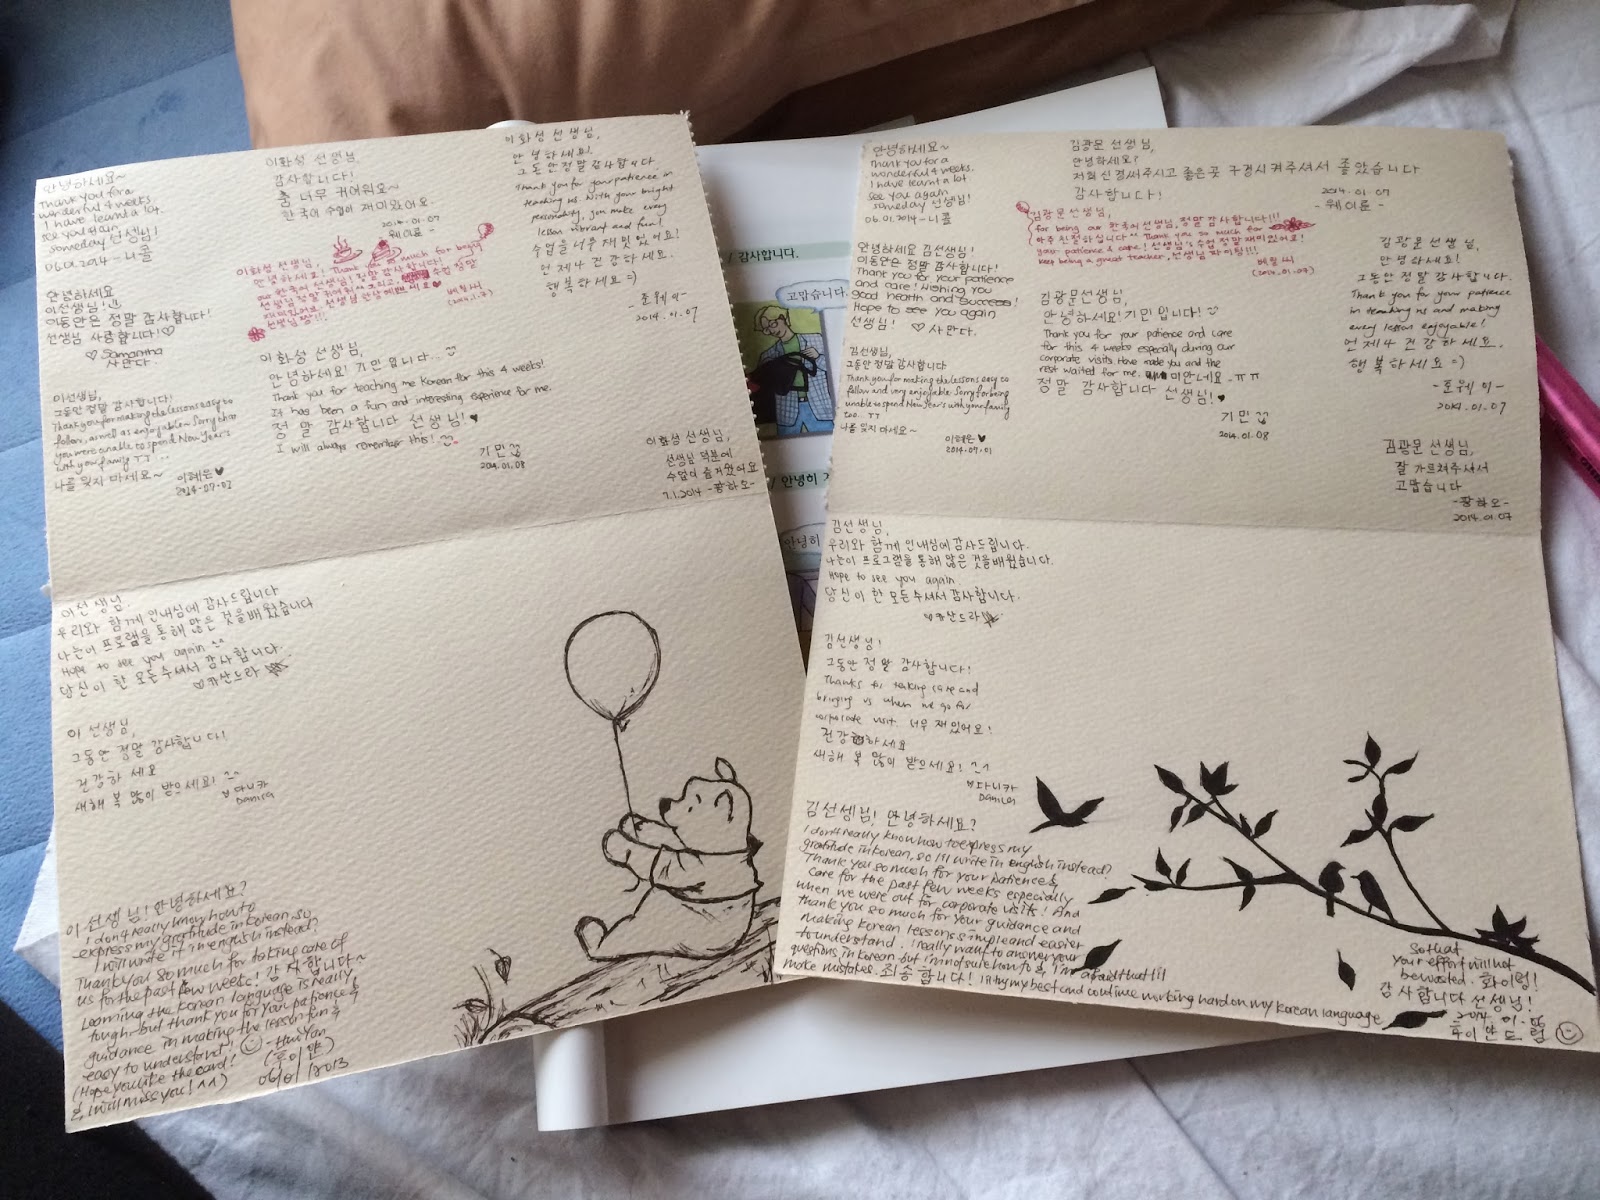 안녕하세요~
Thank you for a
wonderful 4 weeks.
I have learnt a lot.
see you again
someday 선생님!
06.01.2014 - 니콜
안녕하세요
이선생님!
이동안은 정말 감사합니다!
선생님 사랑합니다!♡
♡ Samantha
사만다.
이선생님!
그동안 정말 감사합니다!
Thank you for making the lessons easy to
follow, as well as enjoyable~ Sorry that
you were unable to spend New Year's
with your family TT...
나를 잊지 마세요~
이혜은♥
이화성 선생님,
감사합니다!
춤 너무 귀여워요~
한국어 수업이 재미있어요.
2014.01.07
- 웨이륜 -
이화성 선생님,
안녕하세요! Thank you so much for being
our 한국어 선생님! 정말 감사합니다!
선생님 정말 귀여워
선생님 짱!!!
이화성 선생님,
안녕하세요! 기민 입니다...
Thank you for teaching me Korean for this 4 weeks!
It has been a fun and interesting experience for me.
정말 감사합니다 선생님! ♥
I will always remember this!
기민
2014.01.08
이화성 선생님,
안녕하세요!
그동안 정말 감사합니다.
Thank you for your patience in
teaching us. With your bright
personality, you make every
lesson vibrant and fun!
수업을 너무 재밌었어요!
언제나 건강하세요.
행복하세요 =)
- 준웨이 -
2014.01.07
이화성 선생님,
선생님 덕분에
수업이 즐거웠어요
7.1.2014 -황하오-
이선생님.
우리와 함께 인내심에 감사드립니다
나는이 프로그램을 통해 많은 것을배웠습니다
Hope to see you again ^^
당신이 한 모든주셔서 감사합니다.
♡카산드라
이 선생님,
그동안 정말 감사합니다!
건강하세요
새해 복 많이 받으세요! ^^
다니카
Danica
이선생님! 안녕하세요?
I don't really know how to
express my gratitude in Korean, so
I will write it in english instead?
Thank you so much for taking care of
us for the past few weeks! 감사합니다~
Learning the Korean language is really
tough but thank you for your patience &
guidance in making the lesson fun &
easy to understand!
- Hui Yan
(Hope you like the card!
& I will miss you! ^^)
06/01/2013
안녕하세요~
Thank you for a
wonderful 4 weeks.
I have learnt a lot
see you again
someday 선생님!
06.01.2014 - 니콜
안녕하세요 김선생님!
이동안은 정말 감사합니다!
Thank you for your patience
and care! Wishing you
good health and success!
Hope to see you again
선생님! ♡ 사만다.
김선생님,
그동안 정말 감사합니다
Thank you for making the lessons easy to
follow and very enjoyable. Sorry for being
unable to spend New Year's with your family
too... TT
나를 잊지 마세요~
이혜은♥
김광문 선생님,
안녕하세요?
저희 신경써주시고 좋은곳 구경시켜주셔서 좋았습니다
감사합니다!
2014.01.07
- 웨이륜 -
김광문 선생님,
for being our 한국어 선생님, 정말 감사합니다!!!
아주 친절하십니다 ^^ Thank you so much for
your patience & care! 선생님's 수업 정말 재미있어요!
keep being a great teacher, 선생님 파이팅!!!
(2014.01.07)
김광문선생님,
안녕하세요! 기민 입니다!
Thank you for your patience and care
for this 4 weeks especially during our
corporate visits. Have made you and the
rest waited for me. 미안네요 - ㅠㅠ
정말 감사합니다 선생님!♥
기민
2014.01.08
김광문 선생님,
안녕하세요!
그동안 정말 감사합니다.
Thank you for your patience
in teaching us and making
every lesson enjoyable!
언제나 건강하세요.
행복하세요 =)
- 준웨이 -
2014.01.07
김광문 선생님,
잘 가르쳐주셔서
고맙습니다
-황하오-
2014.01.07
김선생님,
우리와 함께 인내심에 감사드립니다.
나는이 프로그램을 통해 많은 것을배웠습니다.
Hope to see you again
당신이 한 모든주셔서 감사합니다.
♡카산드라
김선생님!
그동안 정말 감사합니다!
Thanks for taking care and
bringing us when we go for
corporate visit. 너무 재있어요!
건강하세요
새해 복 많이 받으세요! ^^
다니카
Danica
김선셍님! 안녕하세요?
I don't really know how to express my
gratitude in korean, so I'll write in english instead?
Thank you so much for your patience &
care for the past few weeks especially
when we were out for corporate visits! And
thank you so much for your guidance and
making korean lessons simple and easier
to understand. I really want to answer your
questions in Korean but I'm not sure how to & I'm afraid that I'll
make mistakes. 죄송합니다! I'll try my best and continue working hard on my Korean language
so that
your effort will not
be wasted. 화이팅!
감사합니다 선생님!
감사합니다.
고맙습니다.